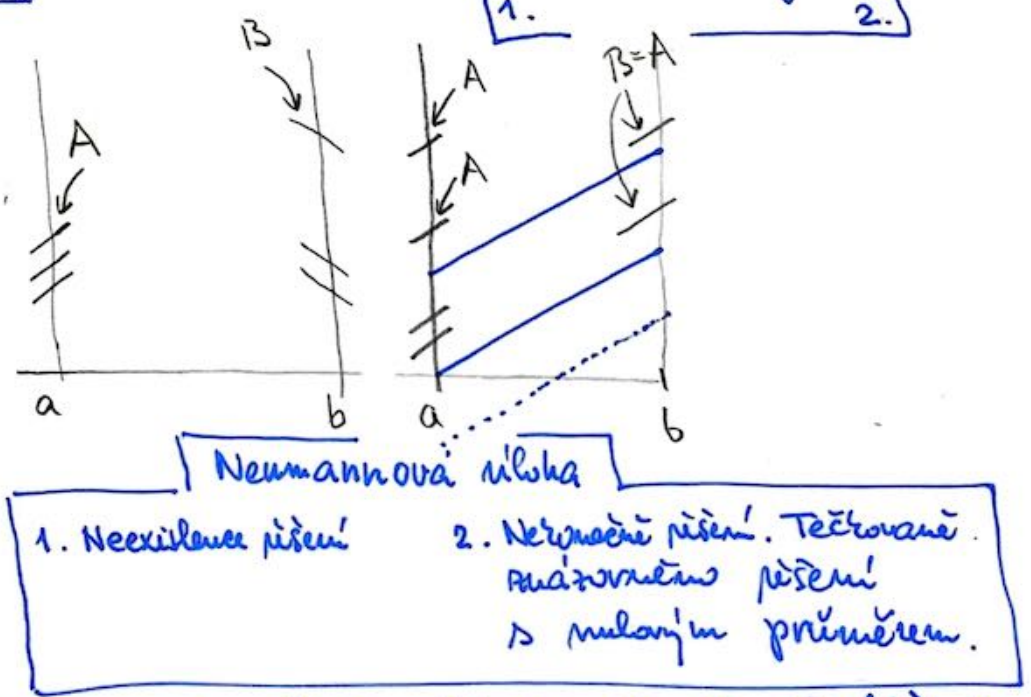 1. 2.
B A B=A
A A
a b a b
Neumannova úloha
1. Neexistence řešení 2. Nejednoznačné řešení. Tečkovaně
znázorněno řešení
s nulovým průměrem.